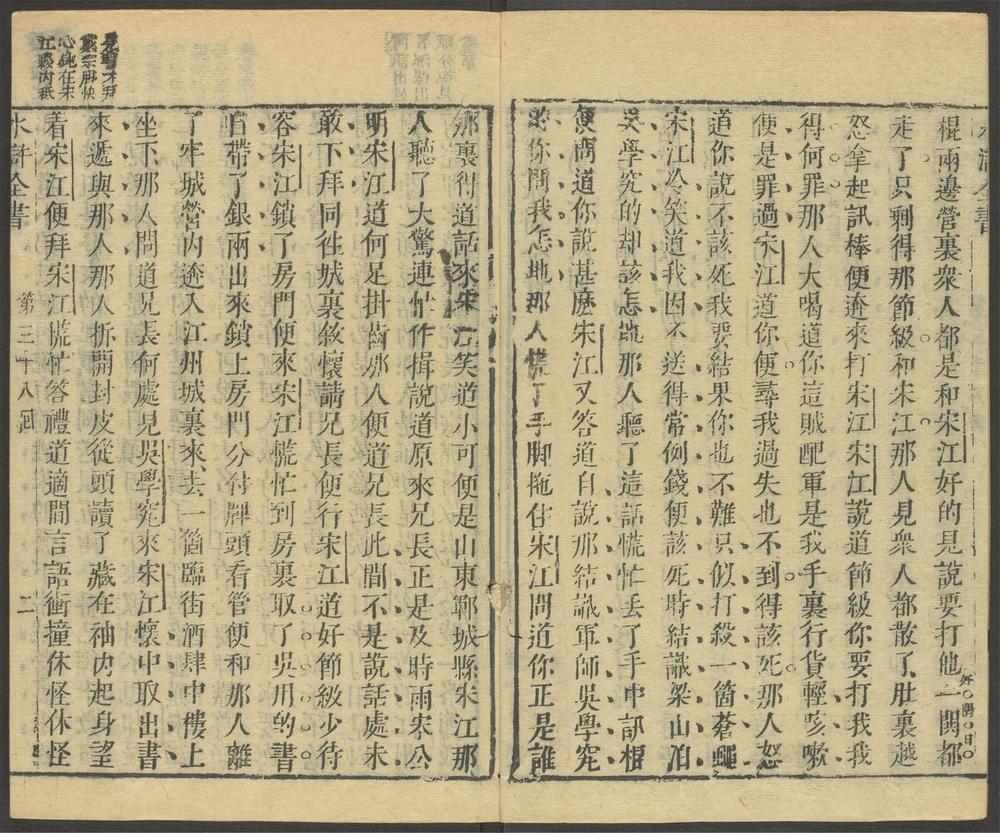 棍兩邊營裏衆人都是和宋江好的見說要打他一閧都
走了只剩得那節級和宋江那人見衆人都散了肚裏越
怒拿起訊棒便逩來打宋江宋江說道節級你要打我我
得何罪那人大喝道你這賊配軍是我手裏行貨輕咳嗽
便是罪過宋江道你便尋我過失也不到得該死那人怒
道你說不該死我要結果你也不難只似打殺一箇蒼蠅
宋江冷笑道我因不送得常例錢便該死時結識梁山泊
吳學究的却該怎地那人聽了這話慌忙丟了手中訊棍
便問道你說甚麼宋江又答道自說那結識軍師吳學究
的你問我怎地那人慌了手脚拖住宋江問道你正是誰
那裏得這話來宋江笑道小可便是山東鄆城縣宋江那
人聽了大驚連忙作揖說道原來兄長正是及時雨宋公
明宋江道何足掛齒那人便道兄長此間不是說話處未
敢下拜同往城裏敘懷請兄長便行宋江道好節級少待
容宋江鎖了房門便來宋江慌忙到房裏取了吳用的書
自帶了銀兩出來鎖上房門分付牌頭看管便和那人離
了牢城營内逩入江州城裏來去一箇臨街酒肆中樓上
坐下那人問道兄長何處見吳學究來宋江懷中取出書
來遞與那人那人拆開封皮從頭讀了藏在袖内起身望
着宋江便拜宋江慌忙答禮道適間言語衝撞休怪休怪
水滸全書
第三十八回
二
戴宗爽快
心鈍在宋